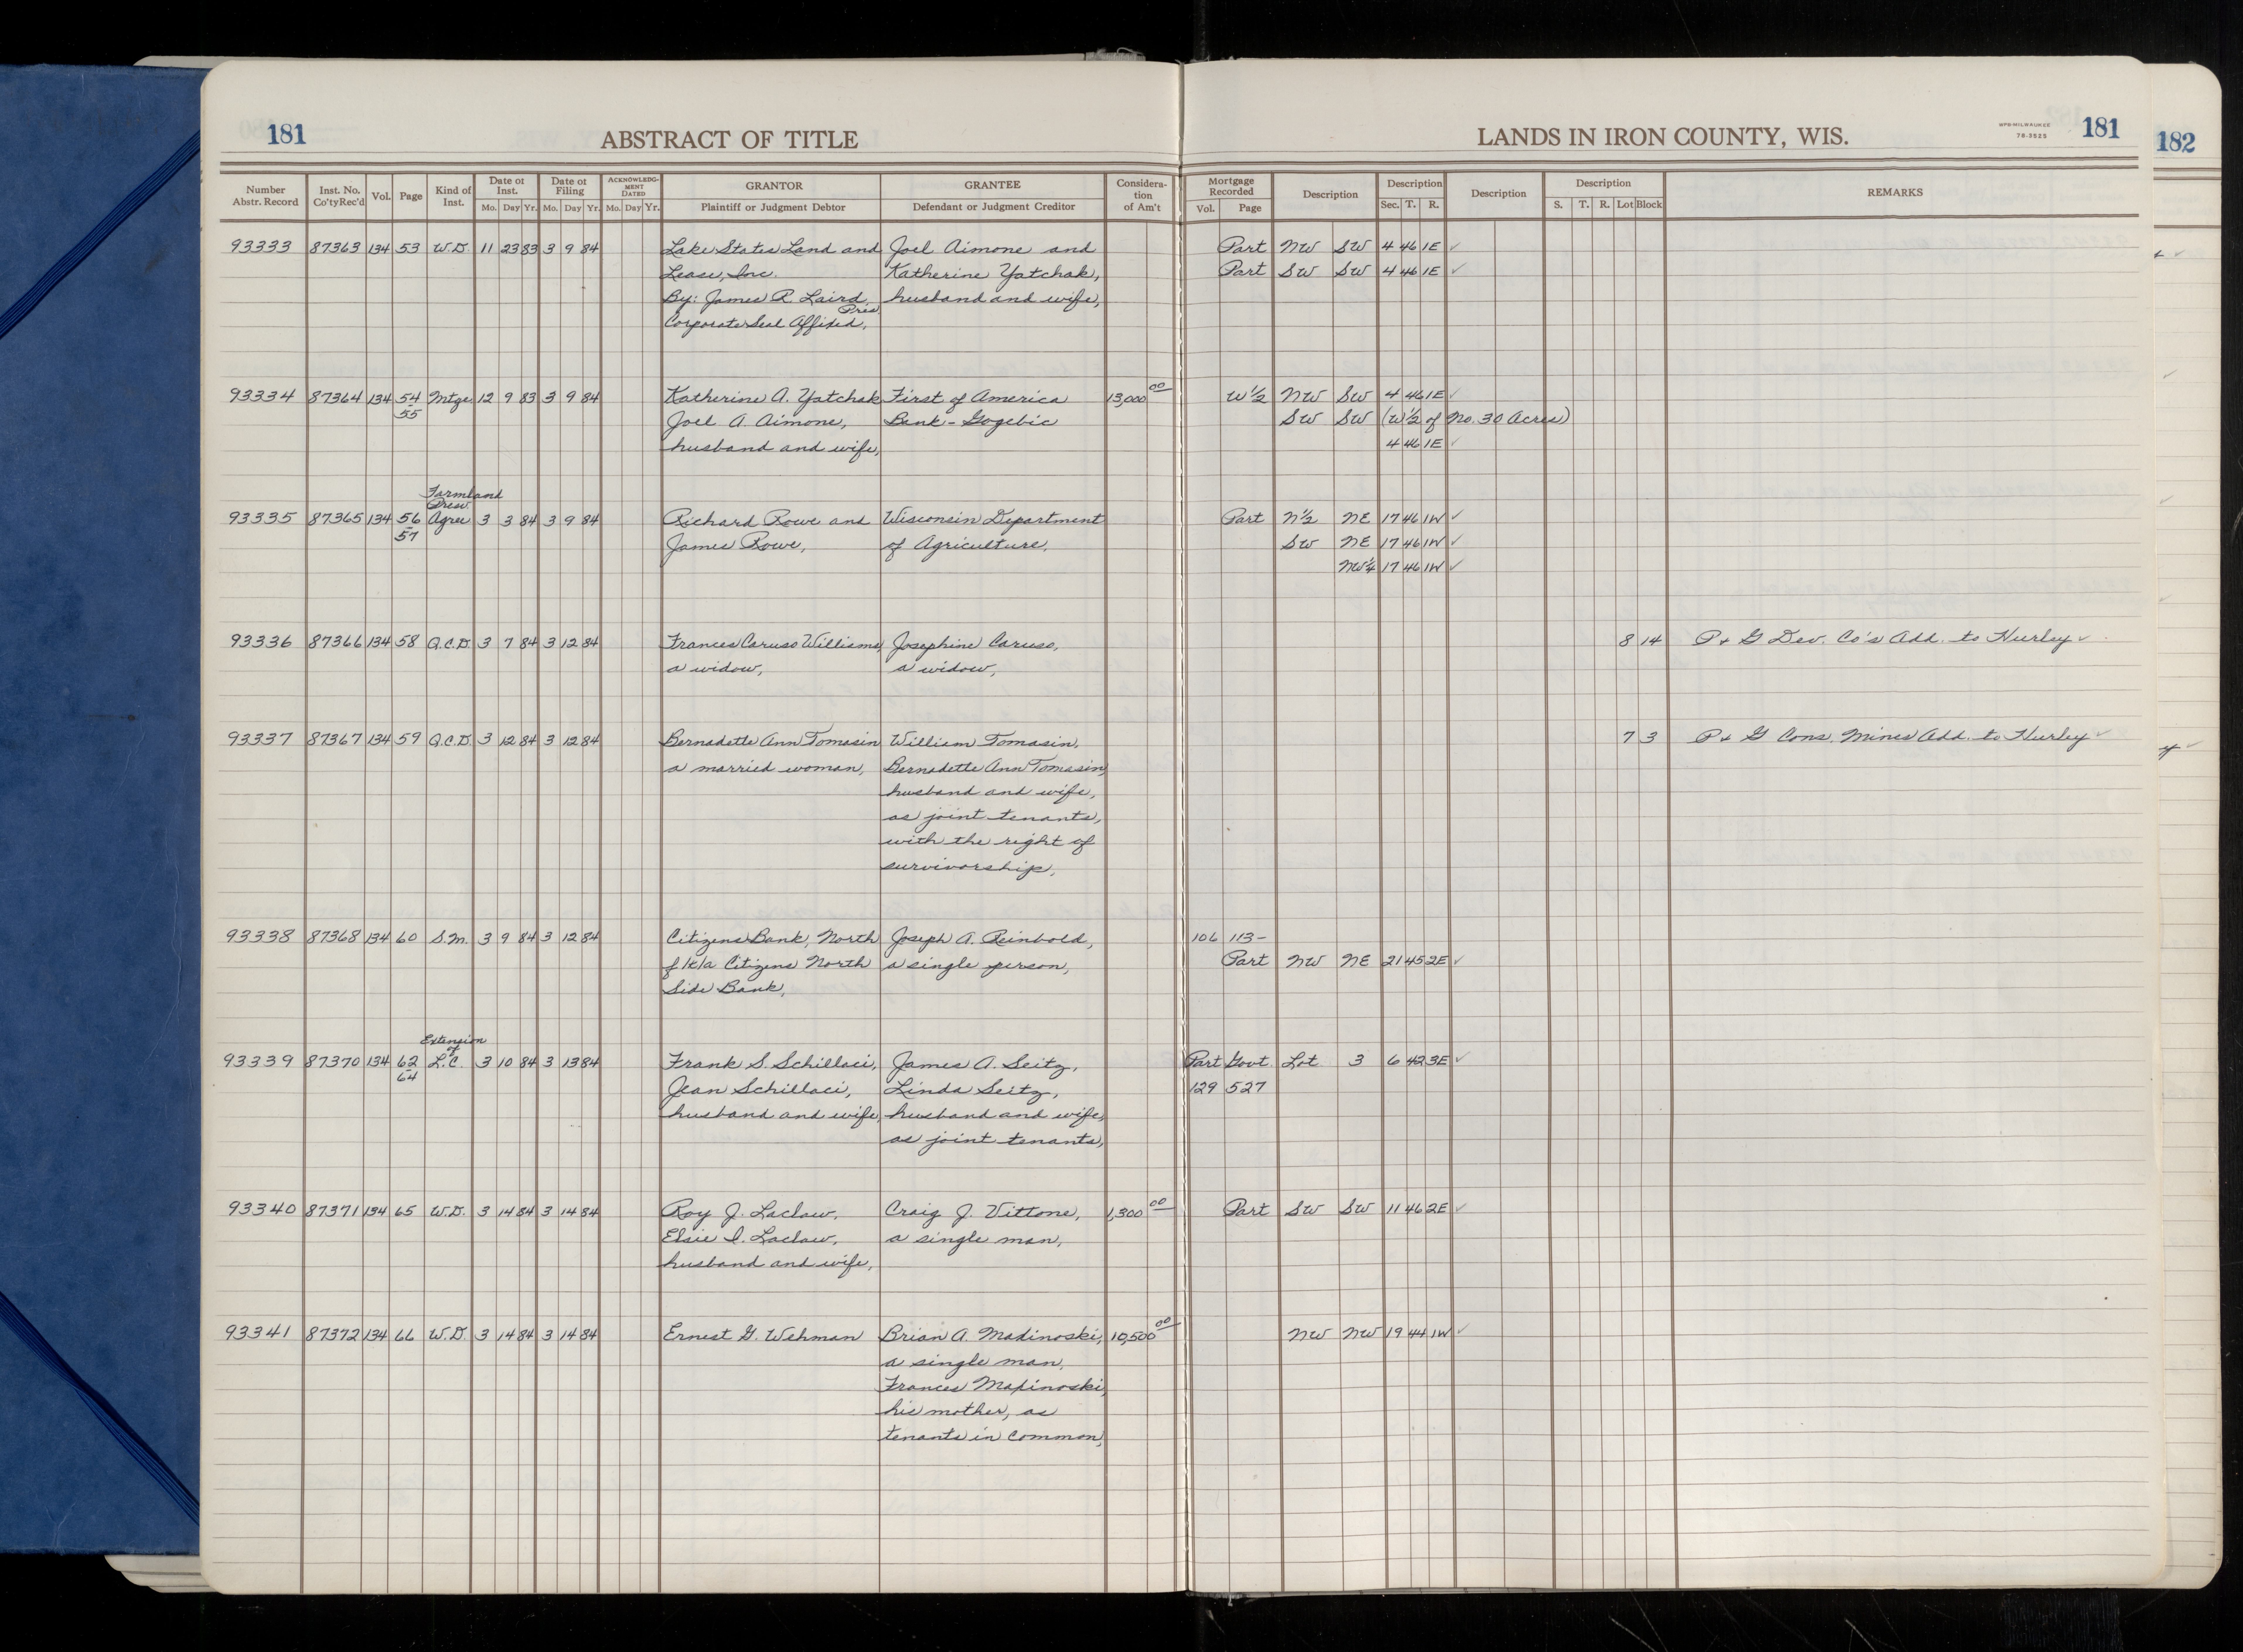 181 ABSTRACT OF TITLE LANDS IN IRON COUNTY, WIS. WPB-MILWAUKEE 78-3525 181 182
Number Abstr. Record Inst. No. Co'ty Rec'd Vol. Page Kind of Inst. Date of Inst. Mo. Day Yr. Date of Filing Mo. Day Yr. ACKNOWLEDGMENT DATED Mo. Day Yr. GRANTOR Plaintiff or Judgment Debtor GRANTEE Defendant or Judgment Creditor Consideration of Am't Mortgage Recorded Vol. Page Description Description Sec. T. R. Description Description S. T. R. Lot Block REMARKS
93333 87363 134 53 W.D. 11 23 83 3 9 84 Lake States Land and Joel Aimone and Part NW SW 4 46 1E ✓
Lease, Inc. Katherine Yatchak, Part SW SW 4 46 1E ✓
By: James R. Laird, husband and wife,
Pres.
Corporate Seal Affixed,
93334 87364 134 54 Mtge 12 9 83 3 9 84 Katherine A. Yatchak First of America 13,000 00 W½ NW SW 4 46 1E ✓
55 Joel A. Aimone, Bank-Gogebic SW SW (W½ of No. 30 Acres)
husband and wife, 4 46 1E ✓
Farmland
Presv
93335 87365 134 56 Agree 3 3 84 3 9 84 Richard Rowe and Wisconsin Department Part N½ NE 17 46 1W ✓
57 James Rowe, of Agriculture, SW NE 17 46 1W ✓
NW¼ 17 46 1W ✓
93336 87366 134 58 Q.C.D. 3 7 84 3 12 84 Frances Caruso Williams, Josephine Caruso, 8 14 P & G Dev. Co's Add. to Hurley ✓
a widow, a widow,
93337 87367 134 59 Q.C.D. 3 12 84 3 12 84 Bernadette Ann Tomasin William Tomasin, 7 3 P & G Cons. Mines Add. to Hurley ✓
a married woman, Bernadette Ann Tomasin,
husband and wife,
as joint tenants,
with the right of
survivorship,
93338 87368 134 60 S.M. 3 9 84 3 12 84 Citizens Bank, North Joseph A. Reinbold, 106 113-
f/k/a Citizens North a single person, Part NW NE 21 45 2E ✓
Side Bank,
Extension
of
93339 87370 134 62 L.C. 3 10 84 3 13 84 Frank S. Schillaci, James A. Seitz, Part Govt. Lot 3 6 42 3E ✓
64 Jean Schillaci, Linda Seitz, 129 527
husband and wife, husband and wife,
as joint tenants,
93340 87371 134 65 W.D. 3 14 84 3 14 84 Roy J. Laclaw, Craig J. Vittone, 1,300 00 Part SW SW 11 46 2E ✓
Elsie I. Laclaw, a single man,
husband and wife,
93341 87372 134 66 W.D. 3 14 84 3 14 84 Ernest G. Wehman Brian A. Madinoski, 10,500 00 NW NW 19 44 1W ✓
a single man,
Frances
his mother, as
tenants in common,